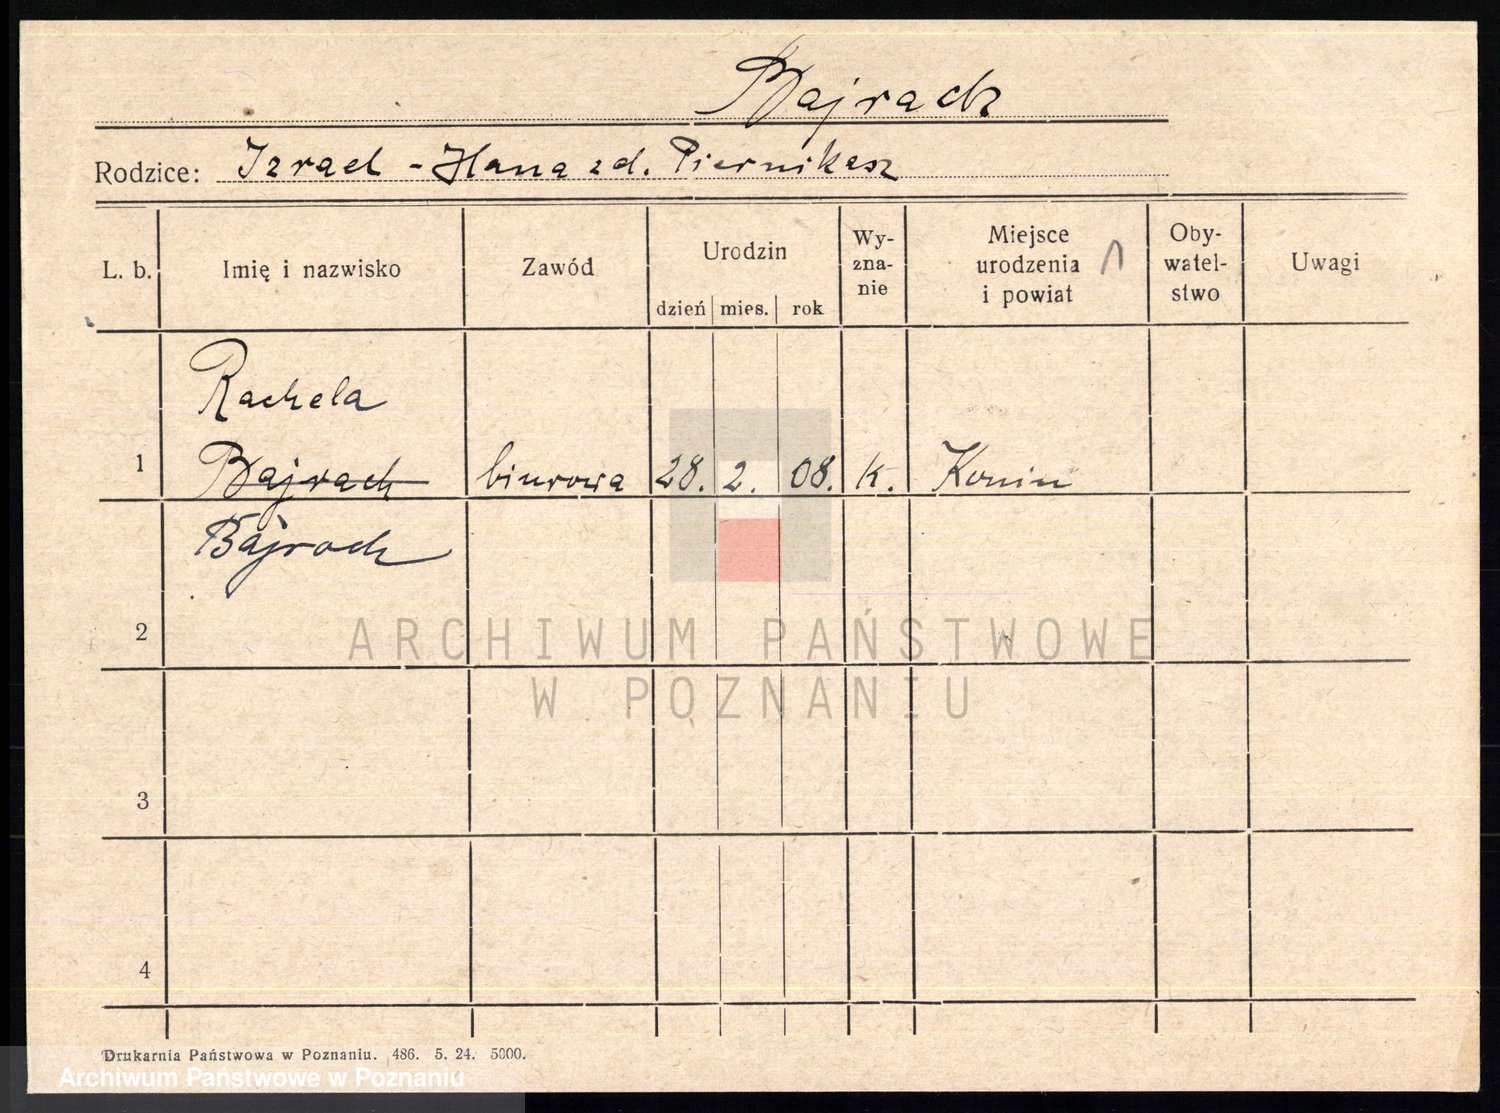 Bajrach
Rodzice: Izrael - Hana zd. Piernikasz
L. b.
Imię i nazwisko
Zawód
Urodzin
dzień mies. rok
Wy-
zna-
nie
Miejsce
urodzenia
i powiat
Oby-
watel-
stwo
Uwagi
Rachela
1 Bajrach biurowa 28. 2. 08. K. Konin
Bajroch
2
ARCHIWUM PAŃSTWOWE
W POZNANIU
3
4
Drukarnia Państwowa w Poznaniu. 486. 5. 24. 5000.
Archiwum Państwowe w Poznaniu